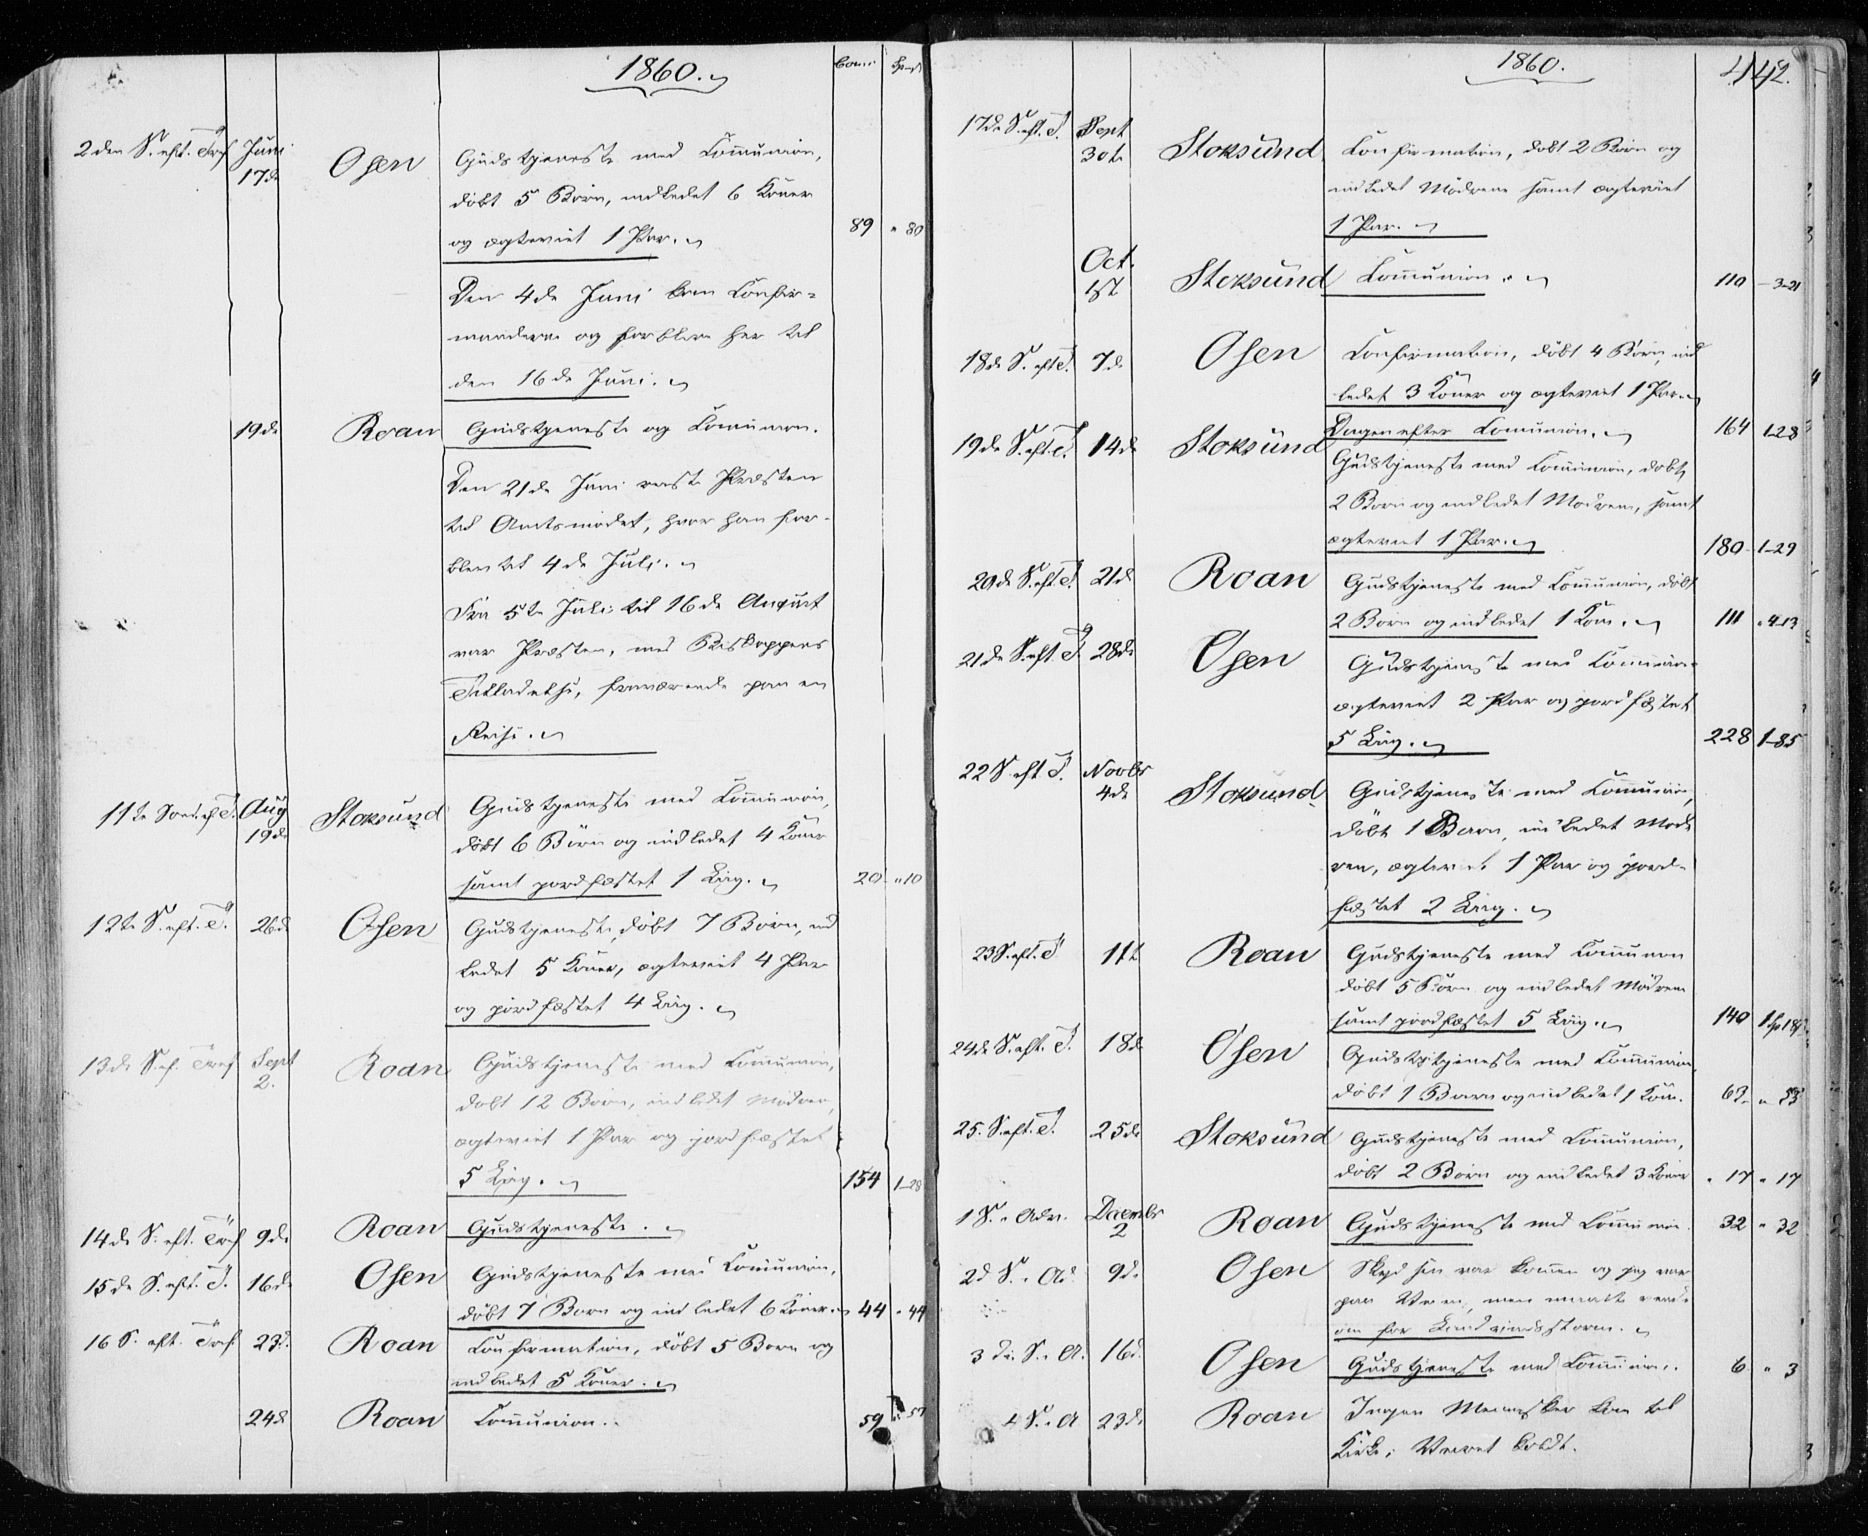 1860.
Comm
2den S. eft. Tref Juni 17de Osen Gudstjeneste med Communion,
döbt 5 Börn, indledet 6 Koner
og ægteviet 1 Par. 89 " 80
Den 4de Juni kom Confir=
manderne og forbleve her til
den 16de Juni.
19de Roan Gudstjeneste og Communion.
Den 21de Juni reiste Præsten
til Amtsmödet, hvor han for-
blev til 4de Juli.
Fra 5te Juli til 16de August
var Præsten, med Biskoppens
Tilladelse, fraværende paa en
Reise.
11te Sond. ef T. Aug 19de Stoksund Gudstjeneste med Communion,
döbt 6 Börn og indledet 4 Koner
samt jordfæstet 1 Liig. 20 " 10
12te S. eft. T. 26de Osen Gudstjeneste, döbt 7 Börn, ind
ledet 5 Koner, ægteviet 4 Par
og jordfæstet 4 Liig.
13de S. ef. Tref Sept 2. Roan Gudstjeneste med Communion,
döbt 12 Börn, indledet Mödrene,
ægteviet 1 Par og jordfæstet
5 Liig. 154 1-28
14de S. eft. Tref 9de Roan Gudstjeneste.
15de S. eft. T. 16de Osen Gudstjeneste med Communion,
döbt 7 Börn og indledet 6 Koner. 44 " 44
16 S. eft. Tref 23de Roan Confirmation, döbt 5 Börn og
indledet 5 Koner.
24de Roan Communion. 59 " 57
1860. 442.
17de S. eft. T. Sept 30te Stoksund Confirmation, döbt 2 Börn og
indledet Mödrene samt ægteviet
1 Par.
Oct. 1st Stoksund Communion. 110 - 3-21
18de S. eft T. 7de Osen Confirmation, döbt 4 Börn, ind
ledet 3 Koner og ægteviet 1 Par.
Dagen efter Communion. 164 1-28
19de S. eft. T. 14de Stoksund Gudstjeneste med Communion, döbt
2 Börn og indledet Mödrene, samt
ægteviet 1 Par. 180 1-29
20de S. eft T. 21de Roan Gudstjeneste med Communion, döbt
2 Börn og indledet 1 Kone. 111 " 4-13
21de S. eft. T. 28de Osen Gudstjeneste med Communion
ægteviet 2 Par og jordfæstet
5 Liig. 228 1-85
22 S. eft T. Novbr 4de Stoksund. Gudstjeneste med Communion,
döbt 1 Barn, indledet Mode
ren, ægteviet 1 Par og jord-
fæstet 2 Liig.
23 S. eft. T 11te Roan Gudstjeneste med Communion
döbt 5 Börn og indledet Mödrene
samt jordfæstet 5 Liig. 140
24de S. eft. T. 18de Osen Gudstjeneste med Communion,
döbt 1 Barn og indledet 1 Kone.
25. S. eft. T. 25de Stoksund Gudstjeneste med Communion,
döbt 2 Börn og indledet 3 Koner " 17 " 17
1 S. i Adv. Decembr 2 Roan Gudstjeneste med Communion. 32 " 32
2d S. i Ad. 9de Osen Skyds en var kommen og jeg var
paa Veien, men maatte vende
om for Landvindsstorm.
3die S. i A. 16de Osen Gudstjeneste med Communion. 6 " 3
4 S. i A 23de Roan Ingen Mennesker kom til
Kirke; Veiret koldt.